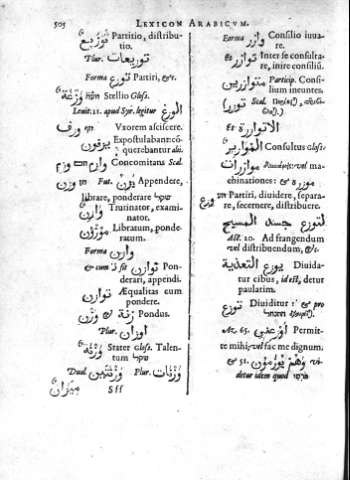 505 LEXICON ARABICVM.
توزيع Partitio, distributio.
Plur. توزيعات
Forma توزع Partiri, &c.
وزغة Stellio Gloss.
Levit. 11. apud Syr. legitur الوزغ
Vxorem asciscere.
يزفون Expostulabant: conquerebantur alii.
وازم Concomitans Scal.
وزن Fut. يزن Appendere,
librare, ponderare שקל
وازن Trutinator, examinator.
موزون Libratum, ponderatum.
Forma وازن
& cum توازن fit Ponderari, appendi.
توازن Æqualitas cum pondere.
وزن & زنة Pondus.
Plur. اوزان
وزنة Stater Gloss. Talentum שקל
Dual. وزنتين Plur. وزنات
Sff ميزان
Forma وازر Consilio iuvare.
توازر Inter se consultare, inire consiliū.
متوازرين Particip. Consilium ineuntes.
توزر Scal.
& الاتوازرة
Consultus Gloss.
موازرات vel machinationes: & موزرة
وزع Partiri, dividere, separare, secernere, distribuere.
لتوزع جسد المسيح
Act. 20. Ad frangendum vel distribuendum, &c.
يوزع التغذية Dividatur cibus, id est, detur paulatim.
توزع Dividitur: & pro
Ac. 65. أوزعني Permitte mihi: vel fac me dignum.
& 51. وهم يوزعون videtur idem quod